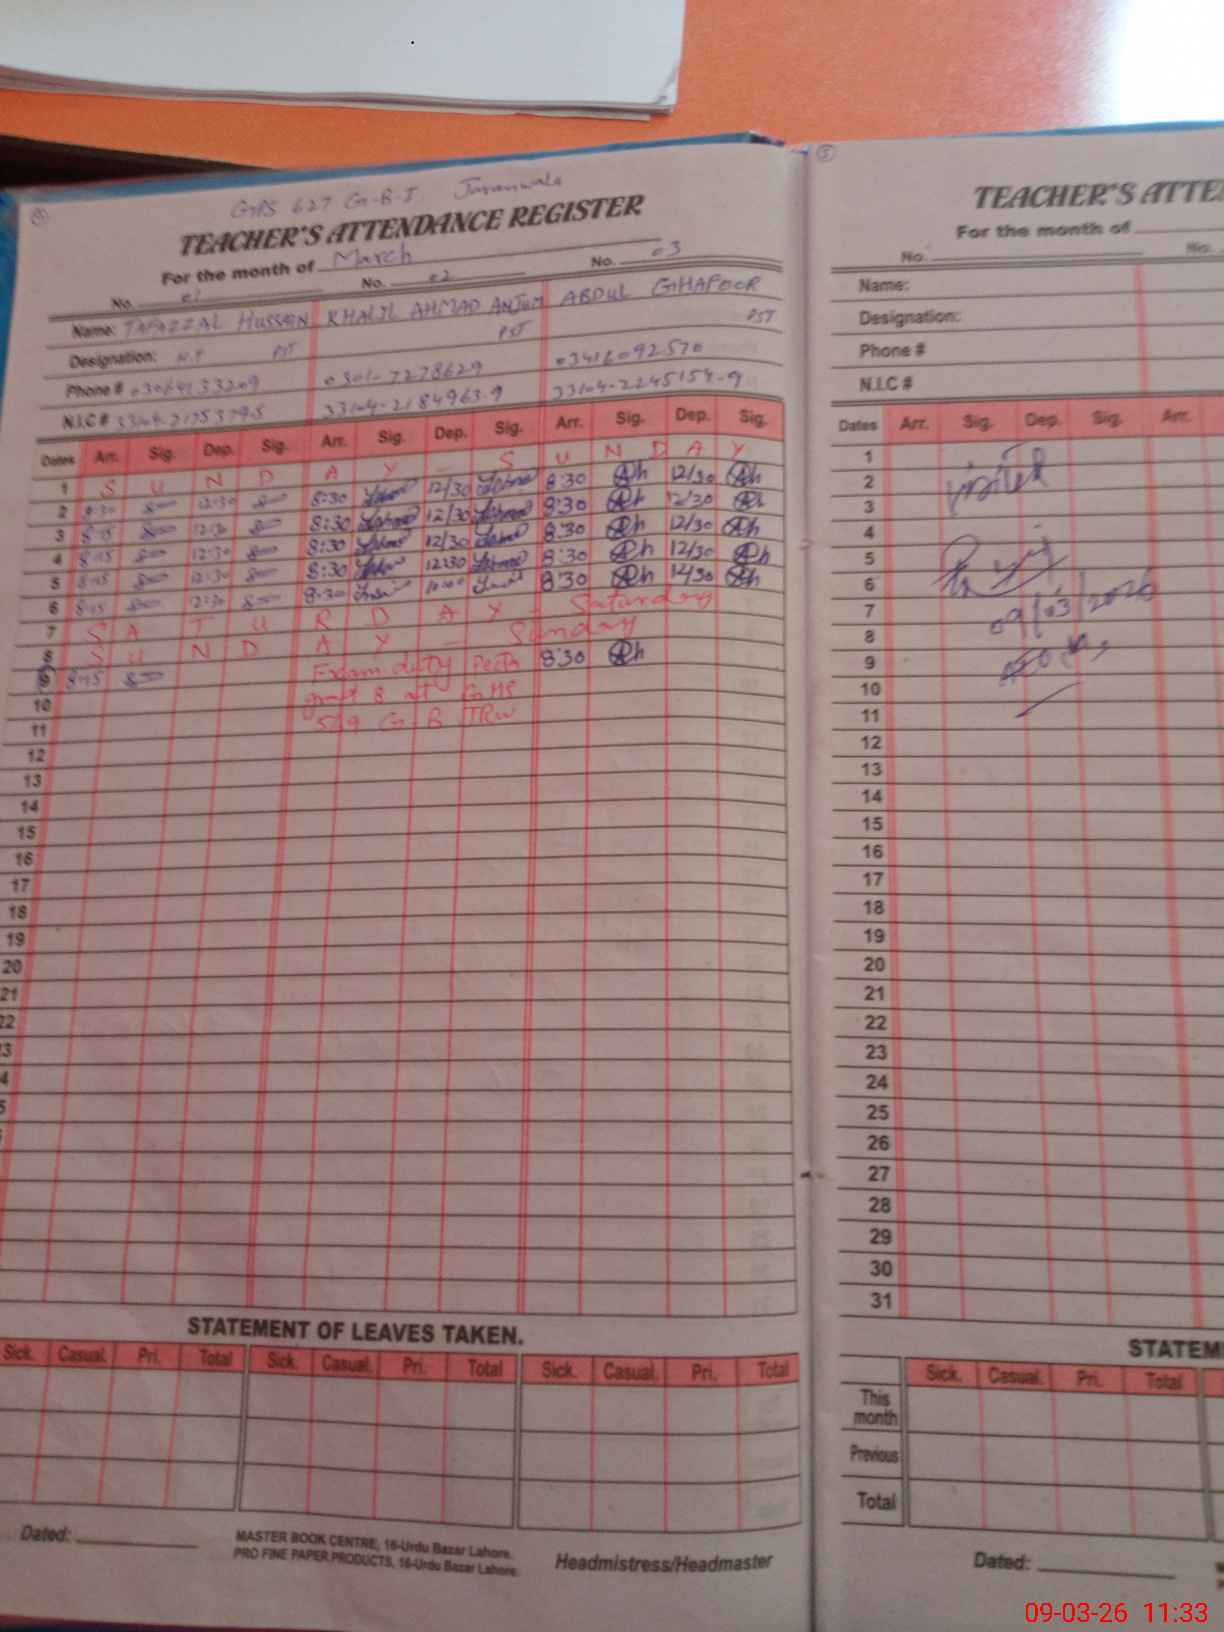 5
GPS 627 G-B-I Jaranwala
TEACHER'S ATTENDANCE REGISTER
For the month of March
No. 01 No. 02 No. 03
Name: TAFAZZAL HUSSAIN KHALIL AHMAD ANJUM ABDUL GHAFOOR
Designation: PST PST PST
Phone # 03064133209 0301-7278629 03416092570
N.I.C # 33104-2184963-9 33104-2245154-9
Dates Arr. Sig. Dep. Sig. Arr. Sig. Dep. Sig. Arr. Sig. Dep. Sig.
1 S U N D A Y - S U N D A Y
2 8:30 12:30 8:30 12/30 8:30 12/30
3 8:15 12:30 8:30 12/30 8:30 12/30
4 8:15 12:30 8:30 12/30 8:30 12/30
5 8:15 12:30 8:30 12:30 8:30 12/30
6 8:15 12:30 8:30 10:00 8:30
7 S A T U R D A Y - Saturday
8 S U N D A Y - Sunday
9 8:45 Exam duty 8:30
10 8 GHS
11 G B JRW
12
13
14
15
16
17
18
19
20
21
22
3
4
5
STATEMENT OF LEAVES TAKEN.
Sick. Casual. Pri. Total Sick. Casual. Pri. Total Sick. Casual. Pri. Total
Dated:
MASTER BOOK CENTRE, 16-Urdu Bazar Lahore.
PRO FINE PAPER PRODUCTS, 16-Urdu Bazar Lahore.
Headmistress/Headmaster
5
TEACHER'S ATTE
For the month of
No. No.
Name:
Designation:
Phone #
N.I.C #
Dates Arr. Sig. Dep. Sig. Arr.
1
2 visited
3
4
5
6
7 09/03/2026
8
9 AEO
10
11
12
13
14
15
16
17
18
19
20
21
22
23
24
25
26
27
28
29
30
31
STATEM
Sick. Casual. Pri. Total
This month
Previous
Total
Dated:
09-03-26 11:33